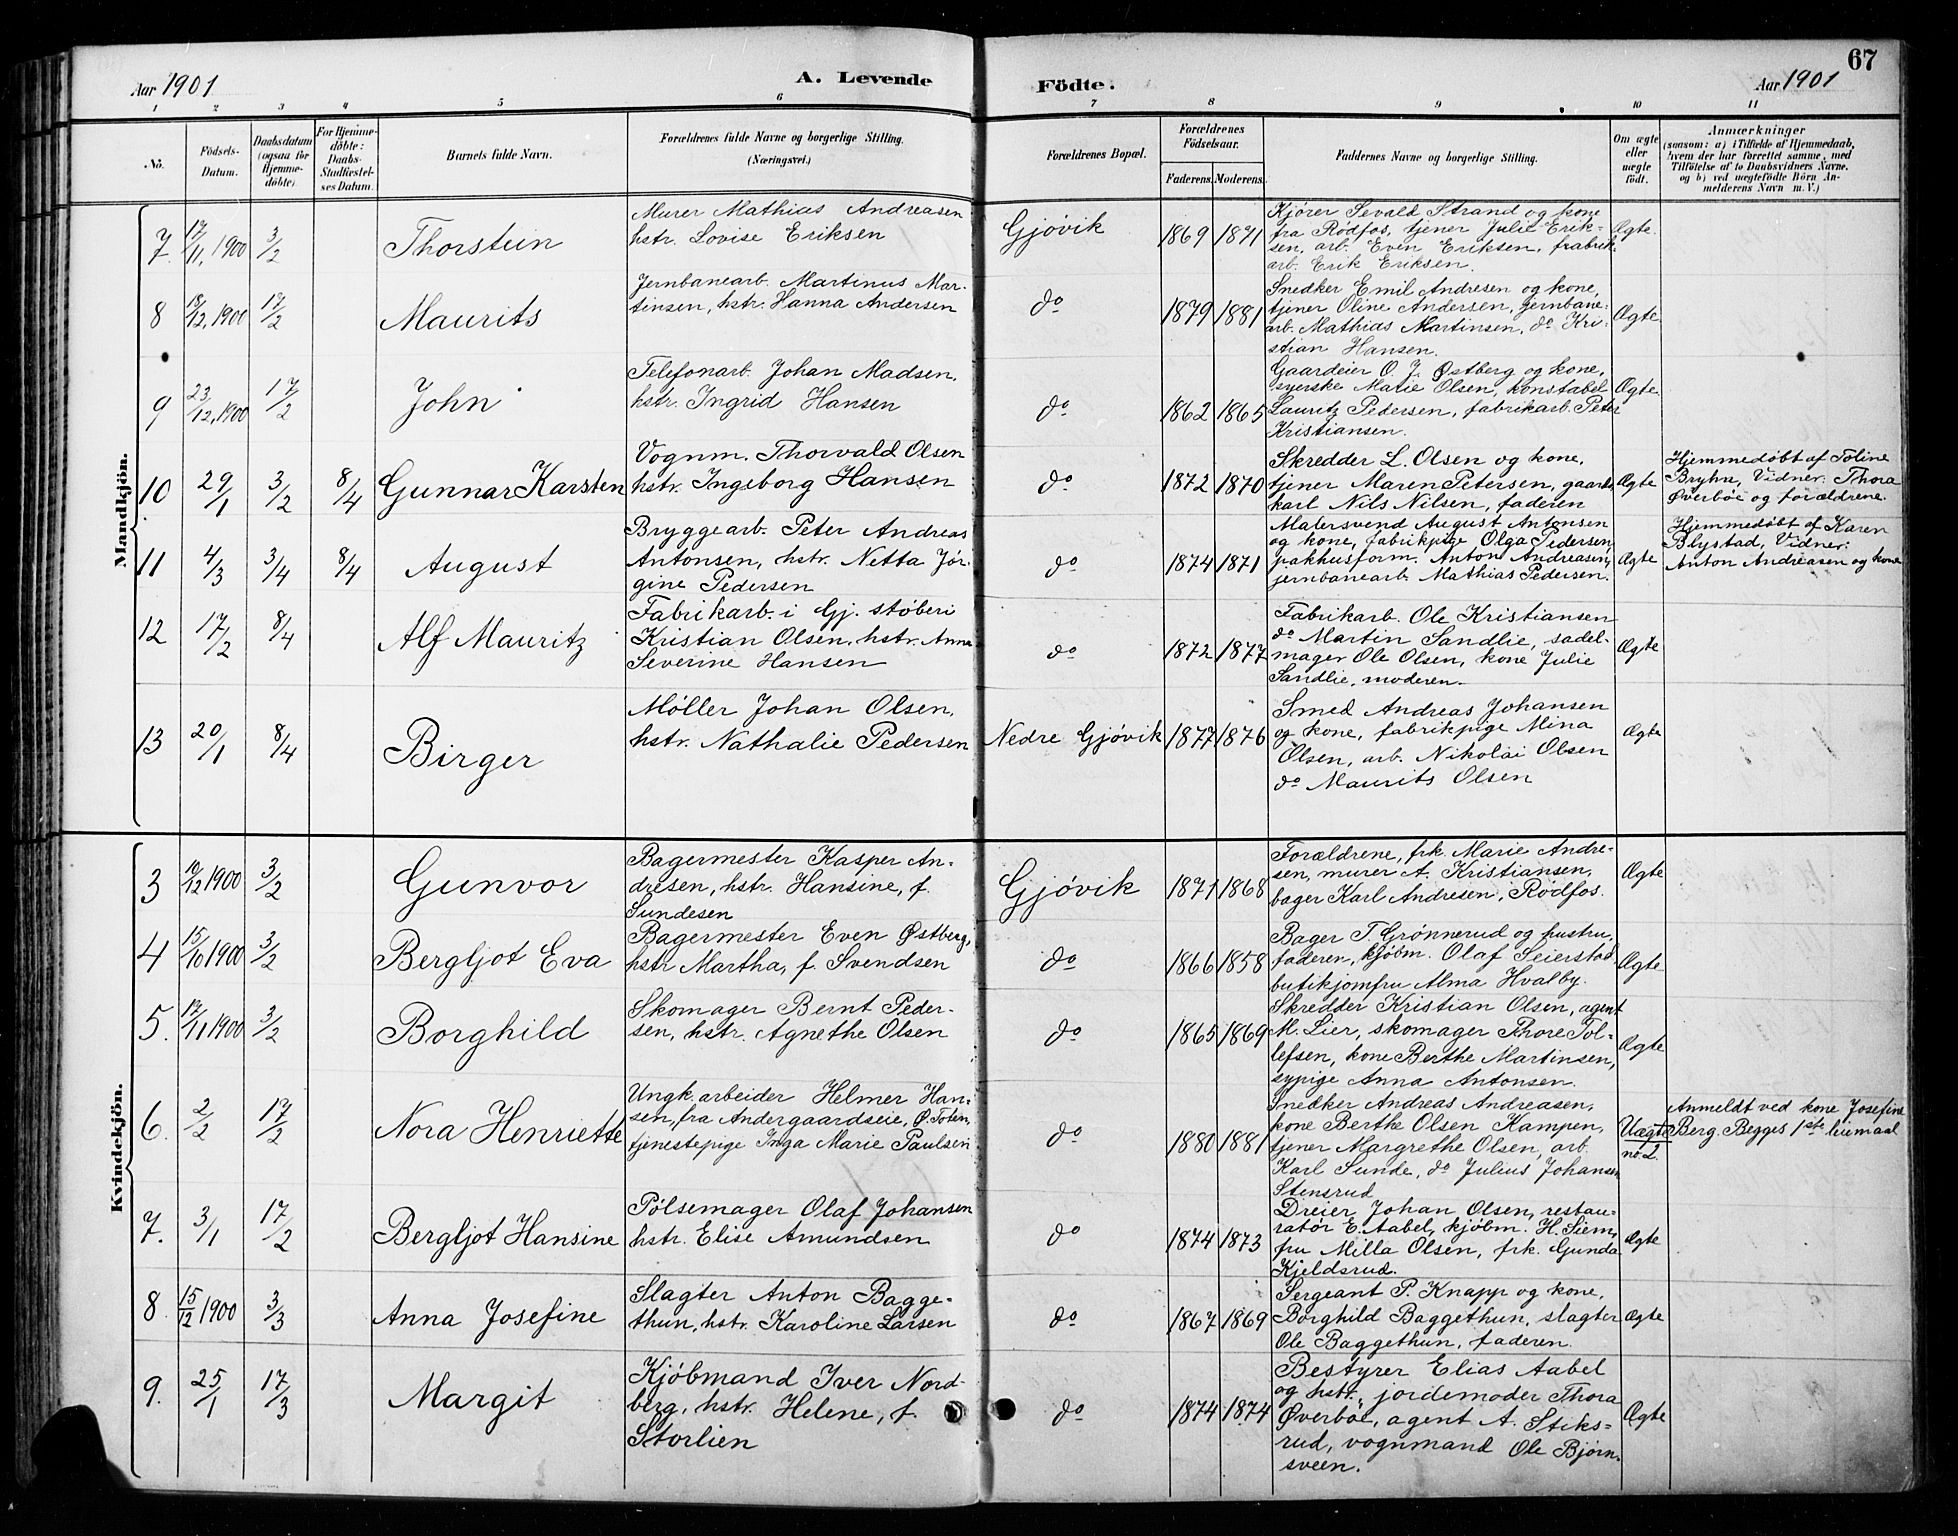 67
Aar 1901
A. Levende
Födte.
Aar 1901
1 2 3 4 5 6 7 8 9 10 11
No.
Födsels-
Datum.
Daabsdatum
(ogsaa for
Hjemme-
döbte).
For Hjemme-
döbte:
Daabs-
Stadfæstel-
ses Datum.
Barnets fulde Navn.
Forældrenes fulde Navne og borgerlige Stilling.
(Næringsvei.)
Forældrenes Bopæl.
Forældrenes
Födselsaar.
Faderens. Moderens.
Faddernes Navne og borgerlige Stilling.
Om ægte
eller
uægte
födt.
Anmærkninger
(saasom: a) i Tilfælde af Hjemmedaab,
hvem der har forrettet samme, med
Tilföielse af to Daabsvidners Navne,
og b) ved uægtefödte Börn An-
melderens Navn m. V.)
Mandkjön.
7. 17/11, 1900 3/2 Thorstein
Murer Mathias Andreasen
hstr. Lovise Eriksen
Gjøvik 1869 1871
Kjører Sevald Strand og kone
fra Rødfos, tjener Julie Erik-
sen, arb. Even Eriksen, fabrik-
arb. Erik Eriksen.
Ægte.
8 19/12, 1900 17/2 Maurits
Jernbanearb. Martinus Mar-
tinsen, hstr. Hanna Andersen
do 1879 1881
Snedker Emil Andresen og kone,
tjener Oline Andersen, jernbane-
arb. Mathias Martinsen, do Kri-
stian Hansen.
Ægte.
9 23/12, 1900 17/2 John
Telefonarb. Johan Madsen,
hstr. Ingrid Hansen
do 1862 1865
Gaardeier O. J. Østberg og kone,
syerske Marie Olsen, konstabel
Lauritz Pedersen, fabrikarb. Peter
Kristiansen.
Ægte.
10 29/1 3/2 8/4 Gunnar Karsten
Vognm. Thorvald Olsen
hstr. Ingeborg Hansen
do 1872 1870
Skredder L. Olsen og kone,
tjener Maren Petersen, gaards-
karl Nils Nilsen, faderen
Ægte
Hjemmedøbt af Toline
Bryhn, Vidner: Thora
Øverbøe og forældrene.
11 4/3 3/4 8/4 August
Bryggearb. Peter Andreas
Antonsen, hstr. Netta Jør-
gine Pedersen
do 1874 1871
Malersvend August Antonsen
og kone, fabrikpige Olga Pedersen,
pakhusform. Anton Andreasen,
jernbanearb. Mathias Pedersen.
Ægte
Hjemmedøbt af Karen
Blystad, Vidner:
Anton Andreasen og kone
12 17/2 8/4 Alf Mauritz
Fabrikarb. i Gj. støberi
Kristian Olsen, hstr. Anna
Severine Hansen
do 1872 1877
Fabrikarb. Ole Kristiansen
do Martin Sandlie, sadel-
mager Ole Olsen, kone Julie
Sandlie, moderen.
Ægte
13 20/1 8/4 Birger
Møller Johan Olsen,
hstr. Nathalie Pedersen
Nedre Gjøvik 1877 1876
Smed Andreas Johansen
og kone, fabrikpige Mina
Olsen, arb. Nikolai Olsen
do Maurits Olsen
Ægte
Kvindekjön.
3 10/12 1900 3/2 Gunvor
Bagermester Kasper An-
dresen, hstr. Hansine, f.
Sundesen
Gjøvik 1871 1868
Forældrene, frk. Marie Andre-
sen, murer A. Kristiansen,
bager Karl Andresen, Rødfos.
Ægte
4 15/10 1900 3/2 Bergljot Eva
Bagermester Even Østberg,
hstr Martha, f. Svendsen
do 1866 1858
Bager T. Grønnerud og hustru,
faderen, kjøbm. Olaf Seierstad,
butikjomfru Alma Hvalby.
Ægte
5. 17/11 1900 3/2 Borghild
Skomager Bernt Peder-
sen, hstr. Agnethe Olsen
do 1865 1869
Skredder Kristian Olsen, agent
M. Lier, skomager Thore Tol-
lefsen, kone Berthe Martinsen,
sypige Anna Antonsen.
Ægte
6. 2/2 17/2 Nora Henriette
Ungk. arbeider Helmer Han-
sen, fra Andergaardseie, Ø. Toten,
tjenestepige Inga Marie Paulsen
do 1880 1881
Snedker Andreas Andreasen,
kone Berthe Olsen Kampen,
tjener Margrethe Olsen, arb.
Karl Sunde, do Julius Johansen
Stensrud
Uægte
no. 2.
Anmeldt ved kone Josefine
Berg. Begges 1ste leiemaal
7. 3/1 17/2 Bergljot Hansine
Pølsemager Olaf Johansen
hstr. Elise Amundsen
do 1874 1873
Dreier Johan Olsen, restau-
ratør E. Aabel, kjøbm. H. Siem,
fru Milla Olsen, frk. Gunda
Kjeldsrud.
Ægte
8. 15/12 1900 3/3 Anna Josefine
Slagter Anton Bagge-
thun, hstr. Karoline Larsen
do 1867 1869
Sergeant P. Knapp og kone,
Borghild Baggethun, slagter
Ole Baggethun, faderen.
Ægte
9. 25/1 17/3 Margit
Kjøbmand Iver Nord-
berg, hstr. Helene, f.
Storlien
do 1874 1874
Bestyrer Elias Aabel
og hstr., jordemoder Thora
Øverbøe, agent A. Stiks-
rud, vognmand Ole Bjørn-
sveen.
Ægte